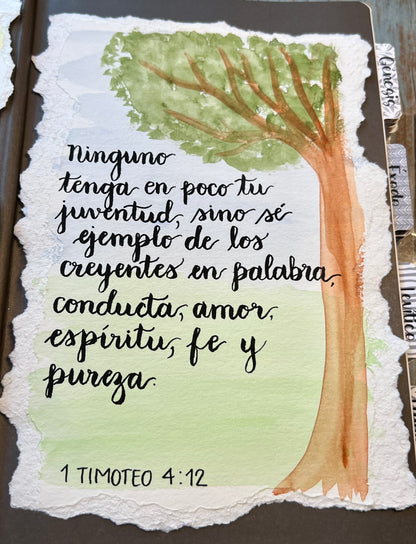 Ninguno
tenga en poco tu
juventud, sino sé
ejemplo de los
creyentes en palabra,
conducta, amor,
espíritu, fe y
pureza.
1 TIMOTEO 4:12
Genesis
Éxodo
Levítico